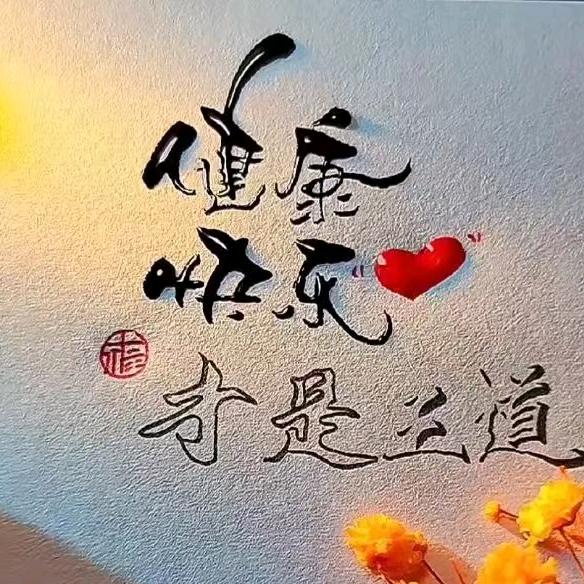 健康
快乐
福
才是王道